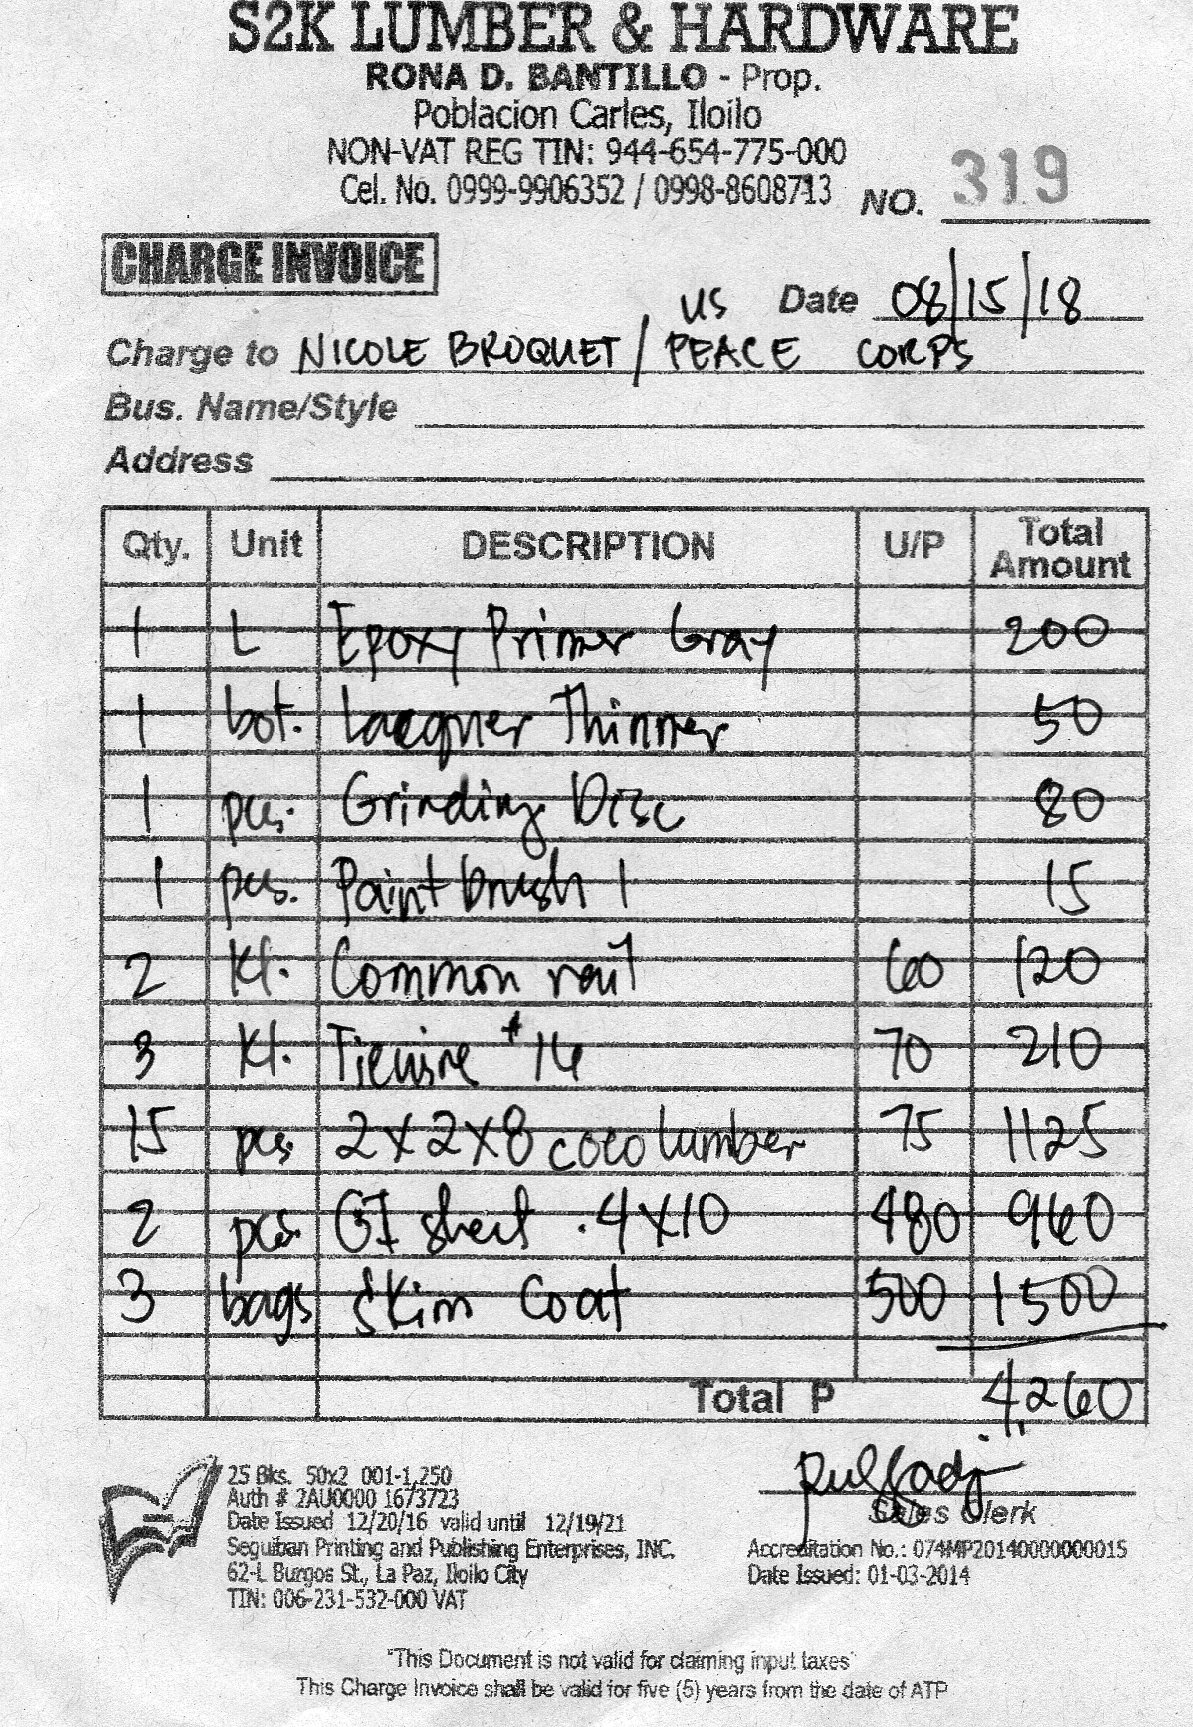 S2K LUMBER & HARDWARE
RONA D. BANTILLO - Prop.
Poblacion Carles, Iloilo
NON-VAT REG TIN: 944-654-775-000
Cel. No. 0999-9906352 / 0998-8608713 NO. 319
CHARGE INVOICE
Date 08/15/18
Charge to NICOLE BROQUET / US PEACE CORPS
Bus. Name/Style
Address
Qty. Unit DESCRIPTION U/P Total Amount
1 L Epoxy Primer Gray 200
1 bot. Lacquer Thinner 50
1 pcs. Grinding Disc 80
1 pcs. Paint brush 1 15
2 Kl. Common nail 60 120
3 Kl. Tiewire #16 70 210
15 pcs. 2x2x8 coco lumber 75 1125
2 pcs. GI sheet .4x10 480 960
3 bags Skim Coat 500 1500
Total P 4,260
Sales Clerk
25 Bks. 50x2 001-1,250
Auth # 2AU0000 1673723
Date Issued 12/20/16 valid until 12/19/21
Seguiban Printing and Publishing Enterprises, INC.
62-L Burgos St., La Paz, Iloilo City
TIN: 006-231-532-000 VAT
Accreditation No.: 074MP20140000000015
Date Issued: 01-03-2014
"This Document is not valid for claiming input taxes"
This Charge Invoice shall be valid for five (5) years from the date of ATP